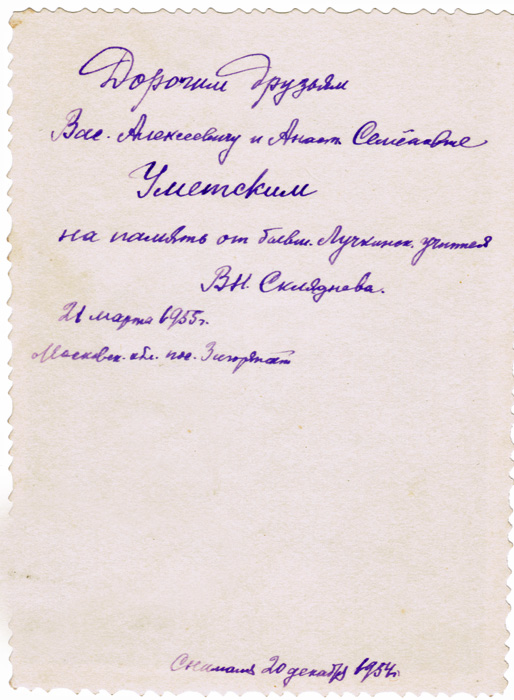 Дорогим друзьям
Вас. Алексеевичу и Анаст. Семёновне
Уметским
на память от бывш. Лучкинск. учителя
В.Н. Скляднева.
21 марта 1955 г.
Московск. обл. пос. Загорянск
Снимался 20 декабря 1954 г.